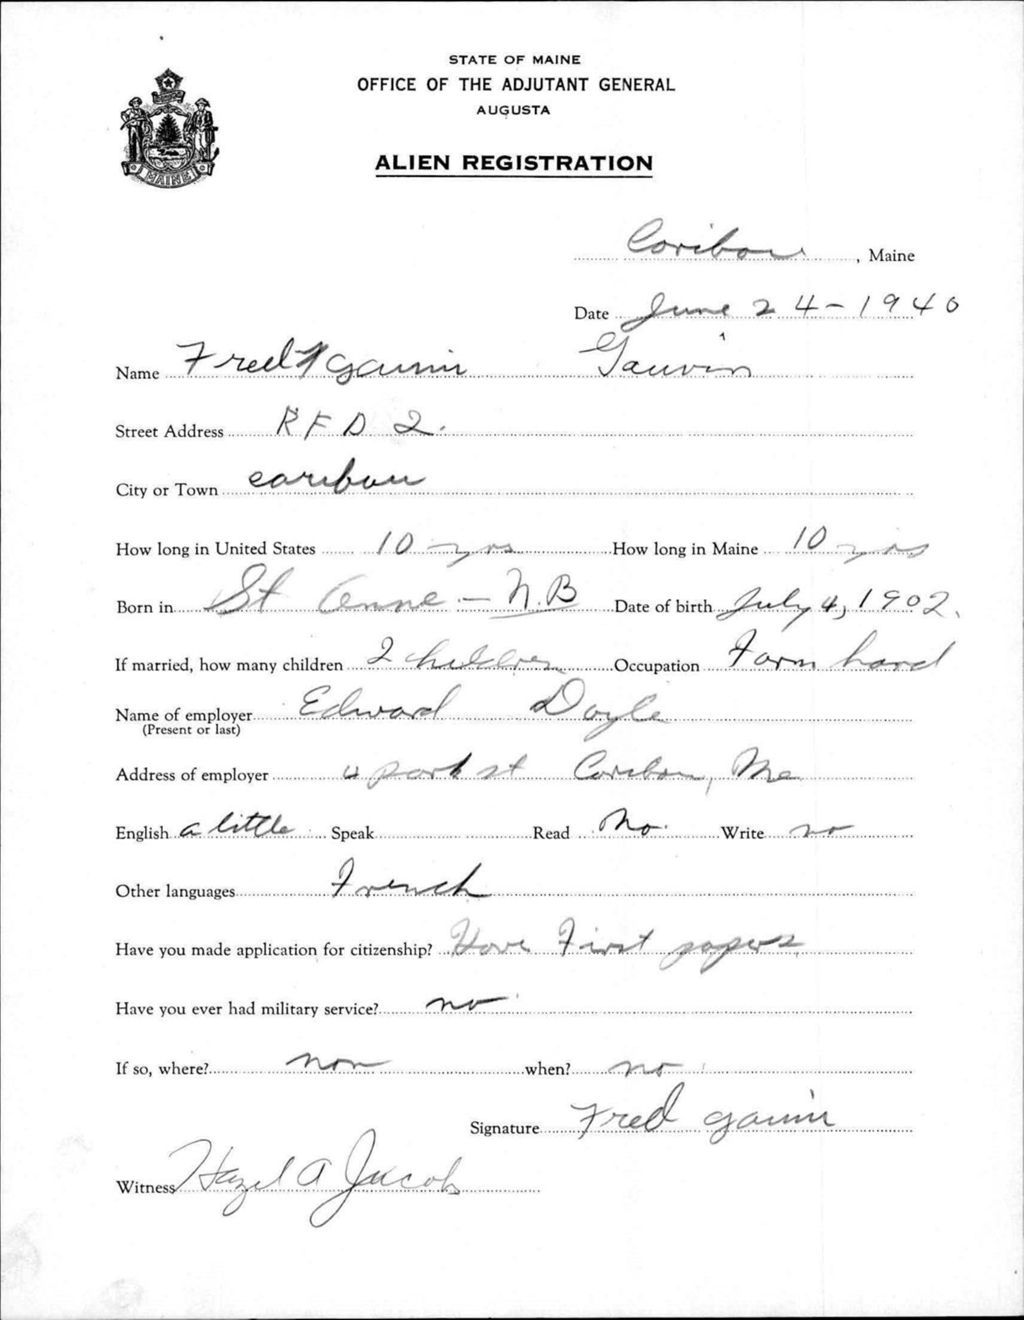 STATE OF MAINE
OFFICE OF THE ADJUTANT GENERAL
AUGUSTA
ALIEN REGISTRATION
MAINE
Caribou, Maine
Date June 24-1940
Name Fred Gauvin Gauvin
Street Address R F D 2.
City or Town caribou
How long in United States 10 yrs How long in Maine 10 yrs
Born in St Anne - N.B Date of birth July 4, 1902.
If married, how many children 2 children Occupation Farm hand
Name of employer Edward Doyle
(Present or last)
Address of employer 4 park st Caribou, Me
English a little Speak Read No. Write no
Other languages French
Have you made application for citizenship? Have First papers
Have you ever had military service? no
If so, where? non when? no
Signature Fred Gauvin
Witness Hazel A Jacobs